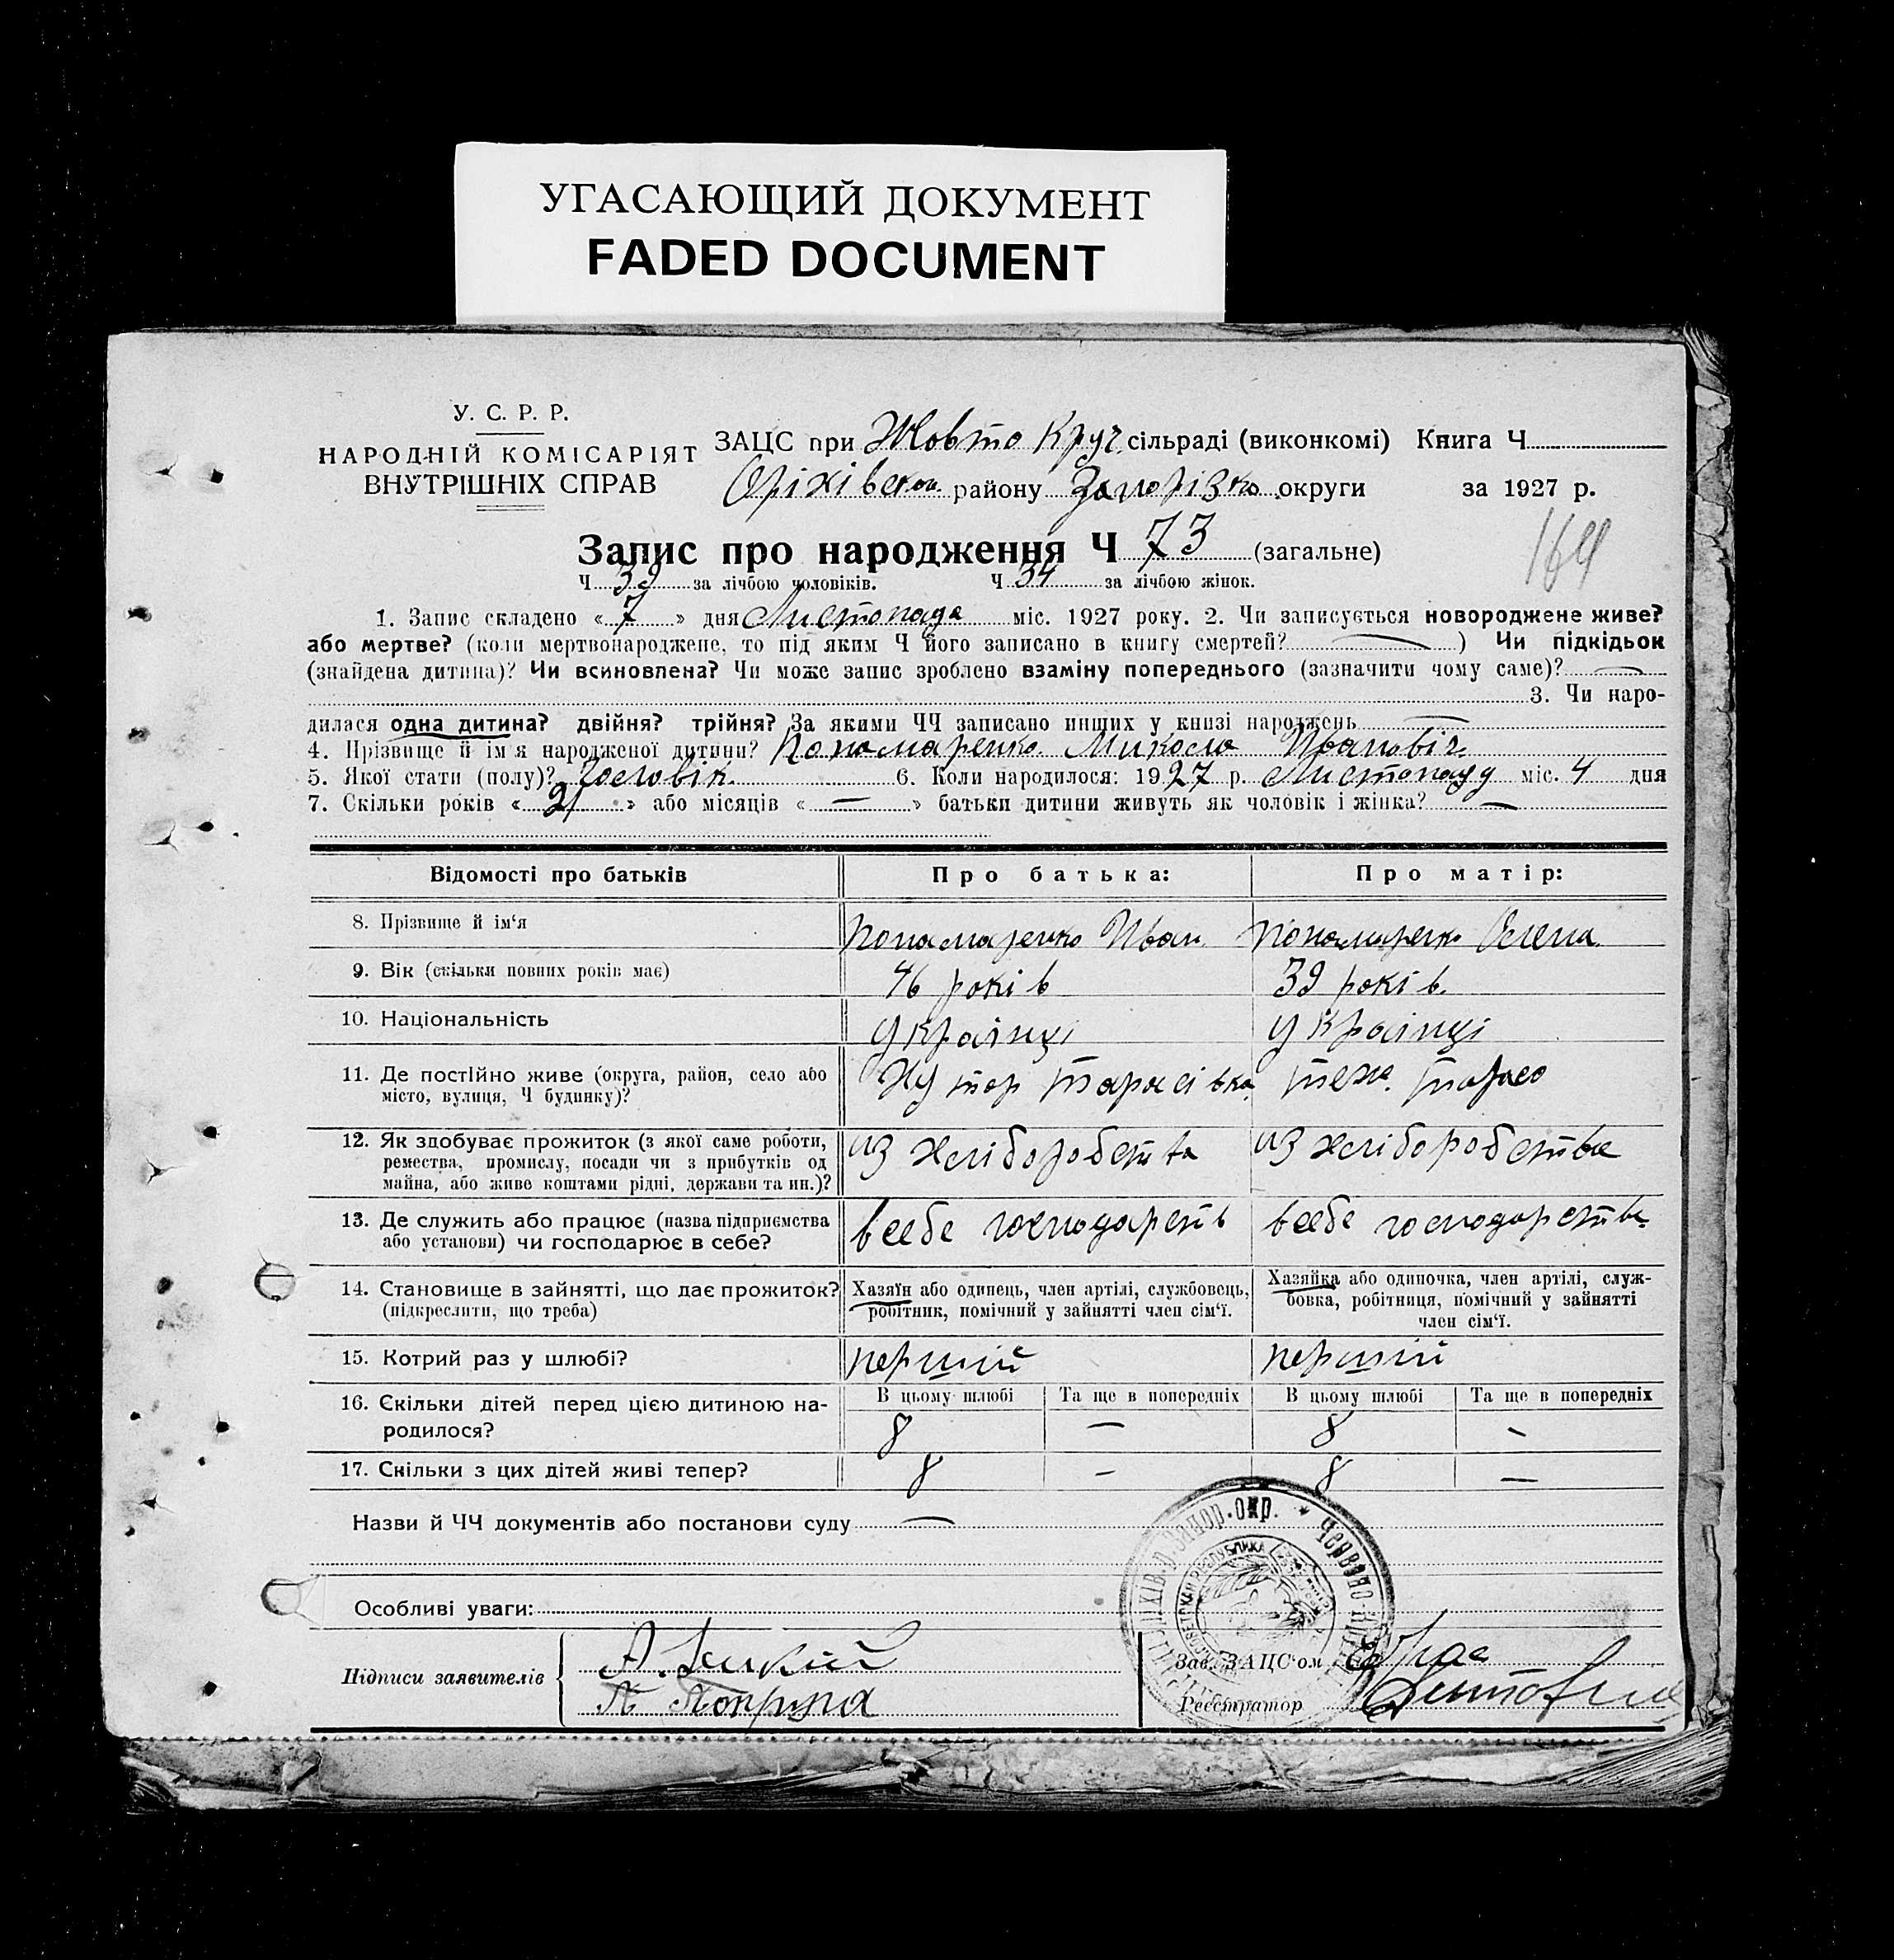 УГАСАЮЩИЙ ДОКУМЕНТ
FADED DOCUMENT
У. С. Р. Р.
НАРОДНІЙ КОМІСАРІЯТ
ВНУТРІШНІХ СПРАВ
ЗАЦС при Жовто Круч. сільраді (виконкомі) Книга Ч
Оріхівськ району Запоріжк округи за 1927 р.
164
Запис про народження Ч 73 (загальне)
Ч 39 за лічбою чоловіків. Ч 34 за лічбою жінок.
1. Запис складено « 7 » дня Листопада міс. 1927 року. 2. Чи записується новороджене живе?
або мертве? (коли мертвонароджене, то під яким Ч його записано в книгу смертей? — ) Чи підкідьок
(знайдена дитина)? Чи всиновлена? Чи може запис зроблено взаміну попереднього (зазначити чому саме)? —
3. Чи наро-
дилася одна дитина? двійня? трійня? За якими ЧЧ записано инших у книзі народжень —
4. Прізвище й ім'я народженої дитини? Понамаренко Микола Иванович
5. Якої стати (полу)? Чословік 6. Коли народилося: 1927 р. Листопаду міс. 4 дня
7. Скільки років « 21 » або місяців « — » батьки дитини живуть як чоловік і жінка? —
Відомості про батьків Про батька: Про матір:
8. Прізвище й ім'я Понамаренко Иван Понамаренко Олена
9. Вік (скільки повних років має) 46 років 39 років.
10. Національність українці українці
11. Де постійно живе (округа, район, село або
місто, вулиця, Ч будинку)? Хутор Тарасівка теж. Тарасо
12. Як здобуває прожиток (з якої саме роботи,
ремества, промислу, посади чи з прибутків од
майна, або живе коштами рідні, держави та ин.)? из хліборобства из хліборобства
13. Де служить або працює (назва підприємства
або установи) чи господарює в себе? всебе господарств всебе господарства
14. Становище в зайнятті, що дає прожиток?
(підкреслити, що треба)
Хазяїн або одинець, член артілі, службовець,
робітник, помічний у зайнятті член сім'ї.
Хазяйка або одиночка, член артілі, служ-
бовка, робітниця, помічний у зайнятті
член сім'ї.
15. Котрий раз у шлюбі? перший перший
В цьому шлюбі Та ще в попередніх В цьому шлюбі Та ще в попередніх
16. Скільки дітей перед цією дитиною на-
родилося? 8 — 8 —
17. Скільки з цих дітей живі тепер? 8 — 8 —
Назви й ЧЧ документів або постанови суду —
Особливі уваги:
Підписи заявителів
Зав. ЗАЦС'ом
Реєстратор